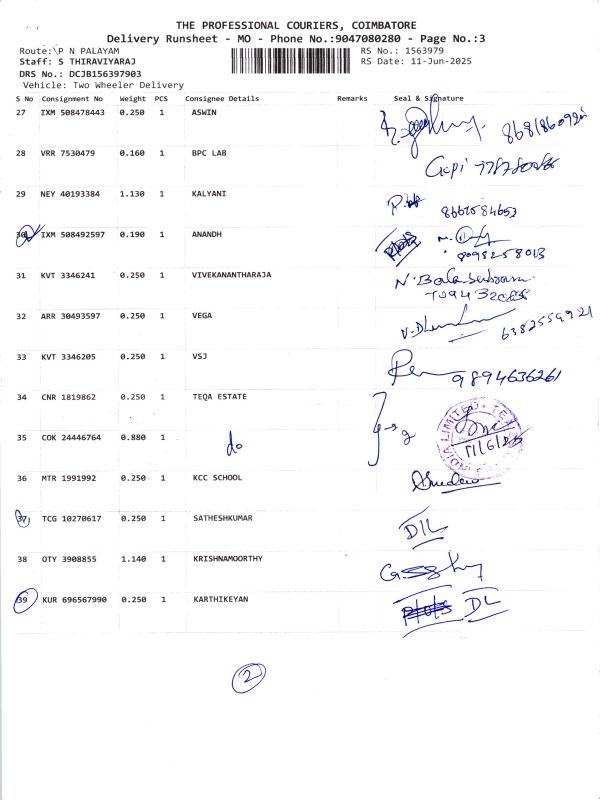 THE PROFESSIONAL COURIERS, COIMBATORE
Delivery Runsheet - MO - Phone No.:9047080280 - Page No.:3
Route: P N PALAYAM RS No.: 1563979
Staff: S THIRAVIYARAJ RS Date: 11-Jun-2025
DRS No.: DCJB156397903
Vehicle: Two Wheeler Delivery
S No Consignment No Weight PCS Consignee Details Remarks Seal & Signature
27 IXM 508478443 0.250 1 ASWIN
28 VRR 7530479 0.160 1 BPC LAB Gopi
29 NEY 40193384 1.130 1 KALYANI
8667584653
30 IXM 508492597 0.190 1 ANANDH
8098258013
31 KVT 3346241 0.250 1 VIVEKANANTHARAJA
32 ARR 30493597 0.250 1 VEGA 6382559921
33 KVT 3346205 0.250 1 VSJ 9894636261
34 CNR 1819862 0.250 1 TEQA ESTATE
35 COK 24446764 0.880 1 do 2 11/6/25
36 MTR 1991992 0.250 1 KCC SCHOOL
37 TCG 10270617 0.250 1 SATHESHKUMAR D/L
38 OTY 3908855 1.140 1 KRISHNAMOORTHY
39 KUR 696567990 0.250 1 KARTHIKEYAN DL
2